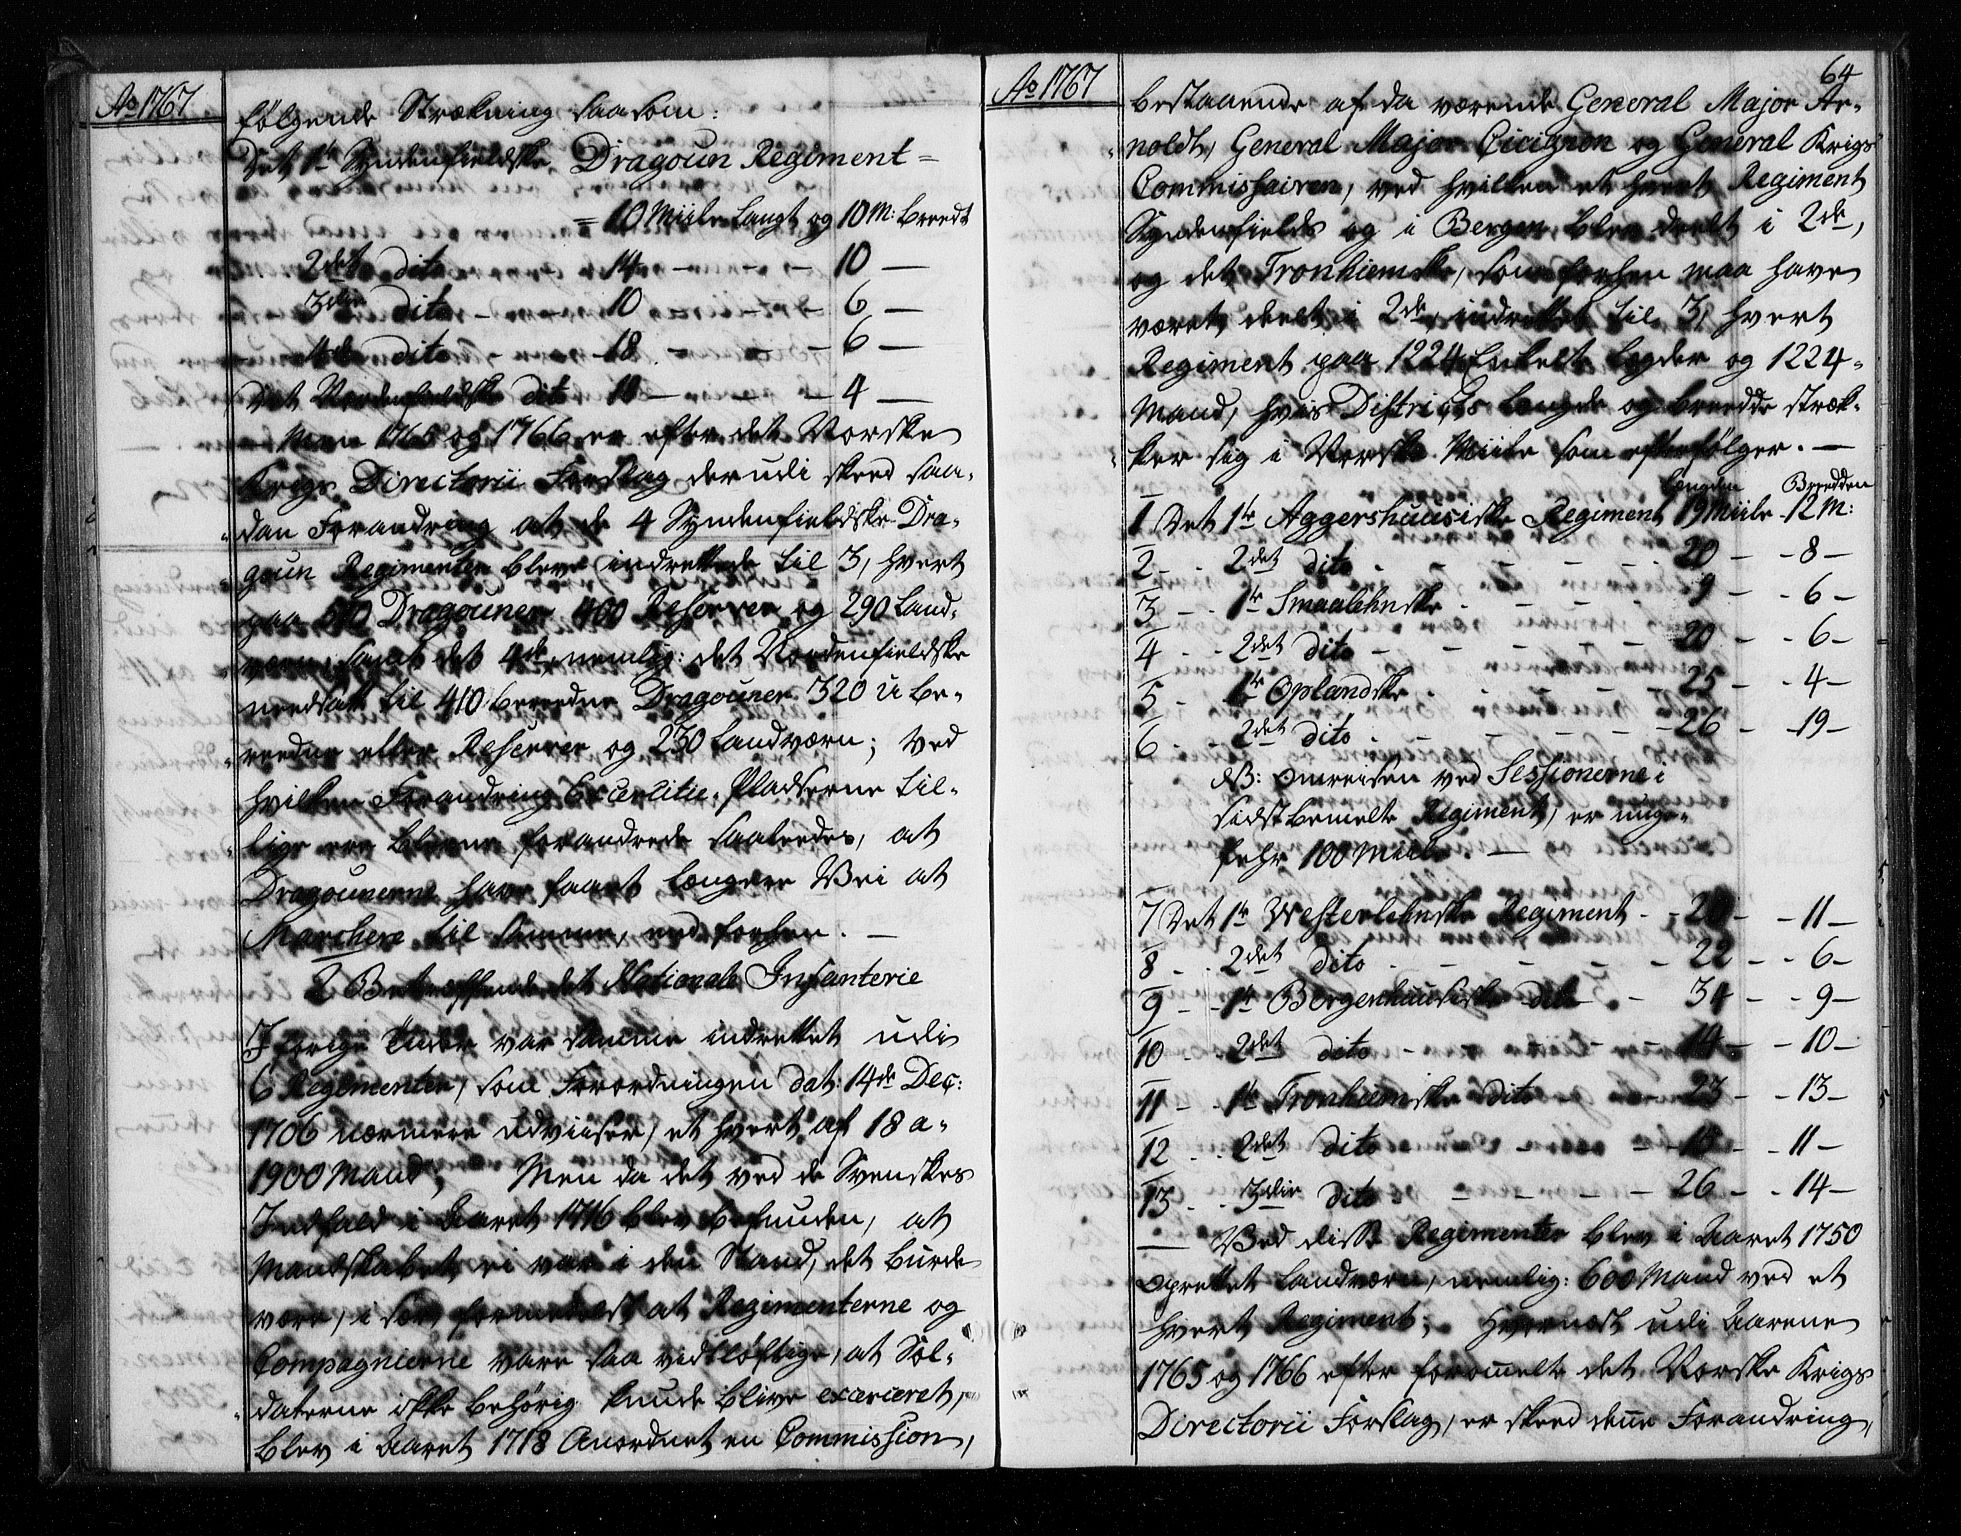 Ao 1767
følgende Strækning saasom:
Det 1te Syndenfieldske Dragoun Regiment =
= 10 Miile Langt og 10 M: breedt
2det dito - 14 - - - 10 -
3die dito - 10 - - - 6 -
4de dito - 18 - - - 6 -
Det Nordenfieldske dito 18 - - - 4 -
Men 1765 og 1766 er efter det Norske
Krigs Directorii Forslag derudi skeed saa-
dan Forandring at de 4 Syndenfieldske Dra-
goun Regimenter bleve indrettede til 3, hvert
paa Dragouner 400 Reserver og 290 Land-
værn, samt det 4de, nemlig: det Nordenfieldske
needsatt til 410 bereedne Dragouner 320 ube-
reedne eller Reserver og 250 Landværn; ved
hvilken Forandring Excercitie-Pladserne til-
lige ere blevne forandrede saaledes, at
Dragounerne have faaet længere Vei at
Marchere til samme, end forhen. -
2 Betreffende det Nationale Infanterie
I forige Tider var samme indrettet udi
6 Regimenter, som Forordningen dat: 14de Dec:
1706 nærmere udviiser, et hvert af 18 a
1900 Mand; Men da det ved de Svenskes
Indfald i Aaret 1716 blev befunden, at
Mandskabet ei var i den Stand, det burde
være, i sær formedelst at Regimenterne og
Compagnierne vare saa vidtløftige, at Sol-
daterne ikke behørig kunde blive exerceret,
blev i Aaret 1718 Anordnet en Commission,
Ao 1767
64
bestaaende af da værende General Major Ar-
noldt, General Major Cicignon og General Krigs
Commissairen, ved hvilken et hvert Regiment
Syndenfields og i Bergen blev deelt i 2de,
og det Tronhiemske, som forhen maa have
været deelt i 2de, indrettet til 3, hvert
Regiment paa 1224 Enkelte Legder og 1224
Mand, hvis Districts Længde og Breedde stræk-
ker sig i Norske Miile som efterfølger. -
Længden Breedden
1 Det 1te Aggershuusiske Regiment 19 Miile - 12 M:
2 - - 2det dito - - - 20 - - 8 -
3 - - 1te Smaalehnske - - - 9 - - 6 -
4 - - 2det dito - - - 20 - - 6 -
5 - 1te Oplandske - - - 25 - - 4 -
6 - - 2det dito - - - 26 - - 19 -
NB: omreisen ved Sessionerne i
sidstbemelte Regiment, er unge-
fehr 100 Miile. -
7 Det 1te Westerlehnske Regiment - - - 11 -
8 - - 2det dito - - - 22 - - 6 -
9 - - 1te Bergenhuusiske dito - 34 - - 9 -
10 - - 2det dito - - - 14 - - 10 -
11 - - 1te Tronhiemske dito - 23 - - 13 -
12 - - 2det dito - - - - 11 -
13 - - 3die dito - - - 26 - - 14 -
- Ved disse Regimenter blev i Aaret 1750
oprettet Landværn, nemlig: 600 Mand ved et
hvert Regiment; Hvornæst udi Aarene
1765 og 1766 efter formelte det Norske Krigs
Directorii Forslag, er skeed denne Forandring,